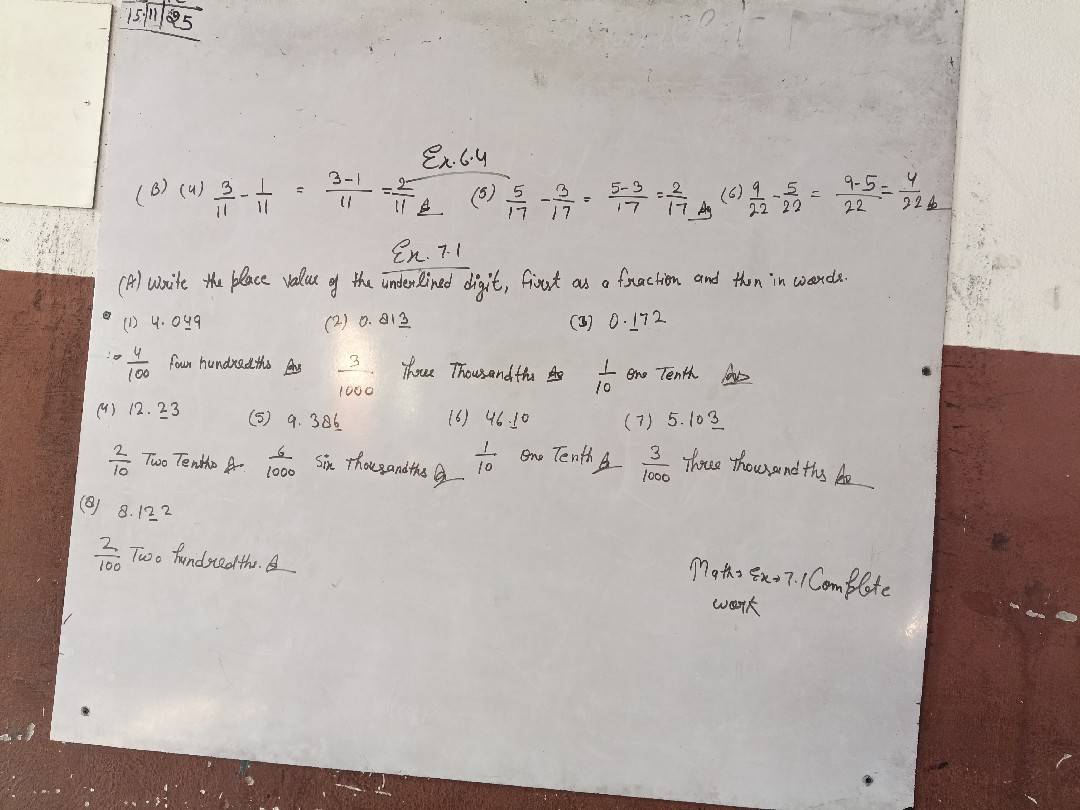 15/11/25
Ex.6.4
(B) (4) 3/11 - 1/11 = 3-1/11 = 2/11 A (5) 5/17 - 3/17 = 5-3/17 = 2/17 As (6) 9/22 - 5/22 = 9-5/22 = 4/22 A
Ex. 7.1
(A) Write the place value of the underlined digit, first as a fraction and then in words.
(1) 4.049 (2) 0.813 (3) 0.172
4/100 four hundredths Ans 3/1000 Three Thousandths As 1/10 One Tenth As
(4) 12.23 (5) 9.386 (6) 46.10 (7) 5.103
2/10 Two Tenths A 6/1000 Six Thousandths A 1/10 One Tenth A 3/1000 Three Thousandths As
(8) 8.122
2/100 Two hundredths. A
Maths Ex → 7.1 Complete
work